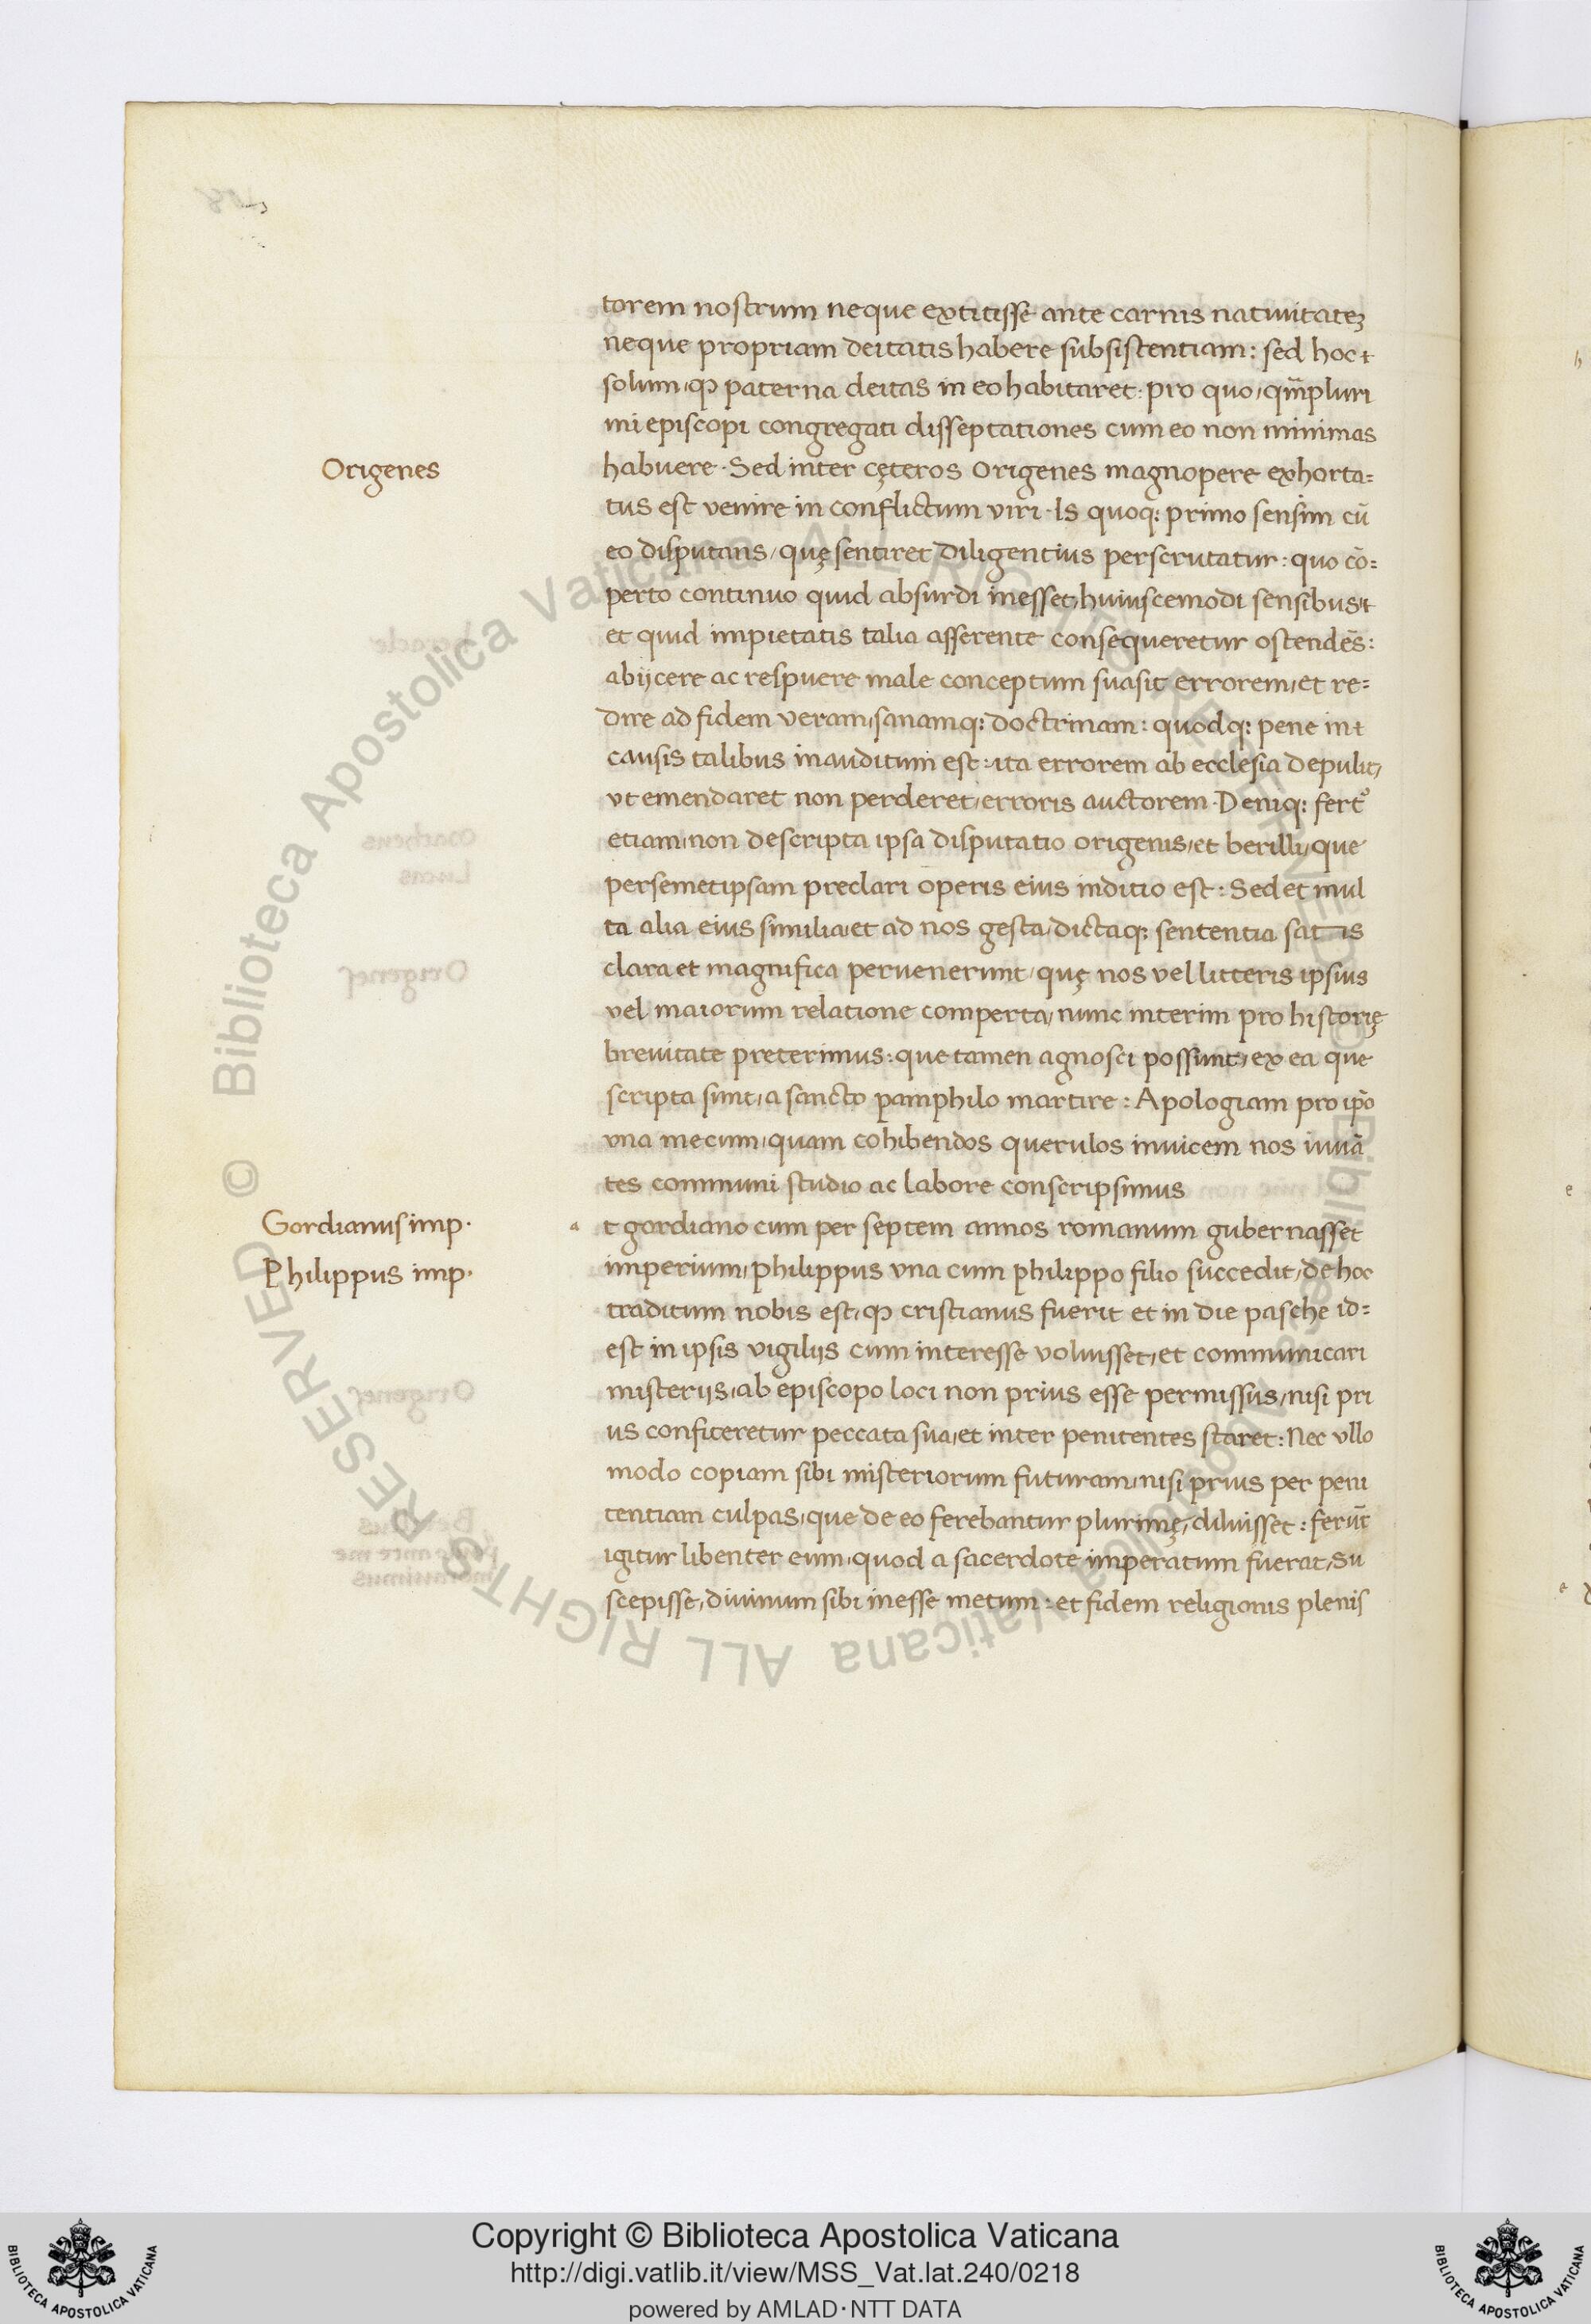 torem nostrum neque extitisse ante carnis natiuitateȝ
neque propriam deitatis habere subsistentiam: sed hoc
solum, ꝙ paterna deitas in eo habitaret: pro quo, qm̄ pluri
mi episcopi congregati disseptationes cum eo non minimas
Origenes
habuere. Sed inter cęteros origenes magnopere exhorta=
tus est venire in conflictum viri. Is quoq: primo sensim cū
eo disputans, quę sentiret diligentius perscrutatur: quo cō=
perto continuo quid absurdi inesset, huiuscemodi sensibus
et quid impietatis talia asserente consequeretur ostendēs:
abijcere ac respuere male conceptum suasit errorem, et re=
dire ad fidem veram, sanamq: doctrinam: quodq: pene in
causis talibus inauditum est: ita errorem ab ecclesia depulit,
vt emendaret non perderet, erroris auctorem. Deniq: fert᷑
etiam, non descripta ipsa disputatio origenis, et berilli, que
persemetipsam preclari operis eius inditio est: Sed et mul
ta alia eius similia, et ad nos gesta, dictaq: sententia satis
clara et magnifica peruenerunt, quę nos vel litteris ipsius
vel maiorum relatione comperta, nunc interim pro historię
breuitate preterimus: que tamen agnosci possunt, ex ea que
scripta sunt, a sancto pamphilo martire: Apologiam pro ip̄o
vna mecum, quam cohibendos querulos inuicem nos iuuā
tes communi studio ac labore conscripsimus
Gordianus imp.
a t gordiano cum per septem annos romanum gubernasset
Philippus imp.
imperium, philippus vna cum philippo filio succedit, de hoc
traditum nobis est, ꝙ cristianus fuerit et in die pasche id=
est in ipsis vigilijs cum interesse voluisset, et communicari
misterijs, ab episcopo loci non prius esse permissus, nisi pri
us confiteretur peccata sua, et inter penitentes staret: Nec vllo
modo copiam sibi misteriorum futuram, nisi prius per peni
tentiam culpas, que de eo ferebantur plurimę, diluisset: ferūt
igitur libenter eum, quod a sacerdote imperatum fuerat, su
scepisse, diuinum sibi inesse metum: et fidem religionis plenis
© Biblioteca Apostolica Vaticana ALL RIGHTS RESERVED
© Biblioteca Apostolica Vaticana ALL RIGHTS RESERVED
Copyright © Biblioteca Apostolica Vaticana
http://digi.vatlib.it/view/MSS_Vat.lat.240/0218
powered by AMLAD·NTT DATA
BIBLIOTECA APOSTOLICA VATICANA
BIBLIOTECA APOSTOLICA VATICANA